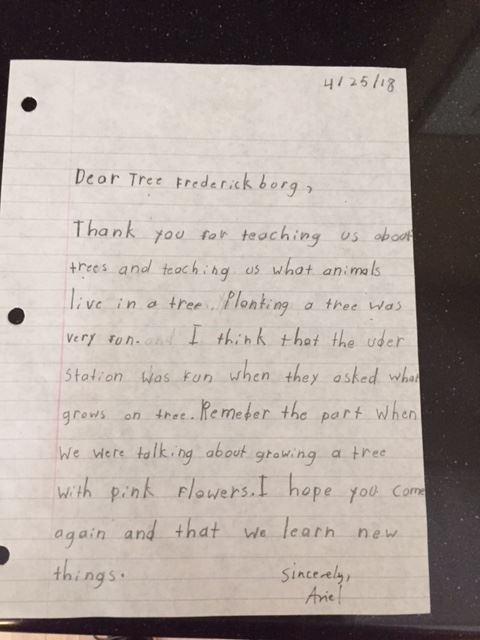 4/25/18
Dear Tree Frederickborg,
Thank you for teaching us about
trees and teaching us what animals
live in a tree. Planting a tree was
very fun. and I think that the uder
station was fun when they asked what
grows on tree. Remeber the part when
We were talking about growing a tree
with pink flowers. I hope you come
again and that we learn new
things.
Sincerely,
Ariel